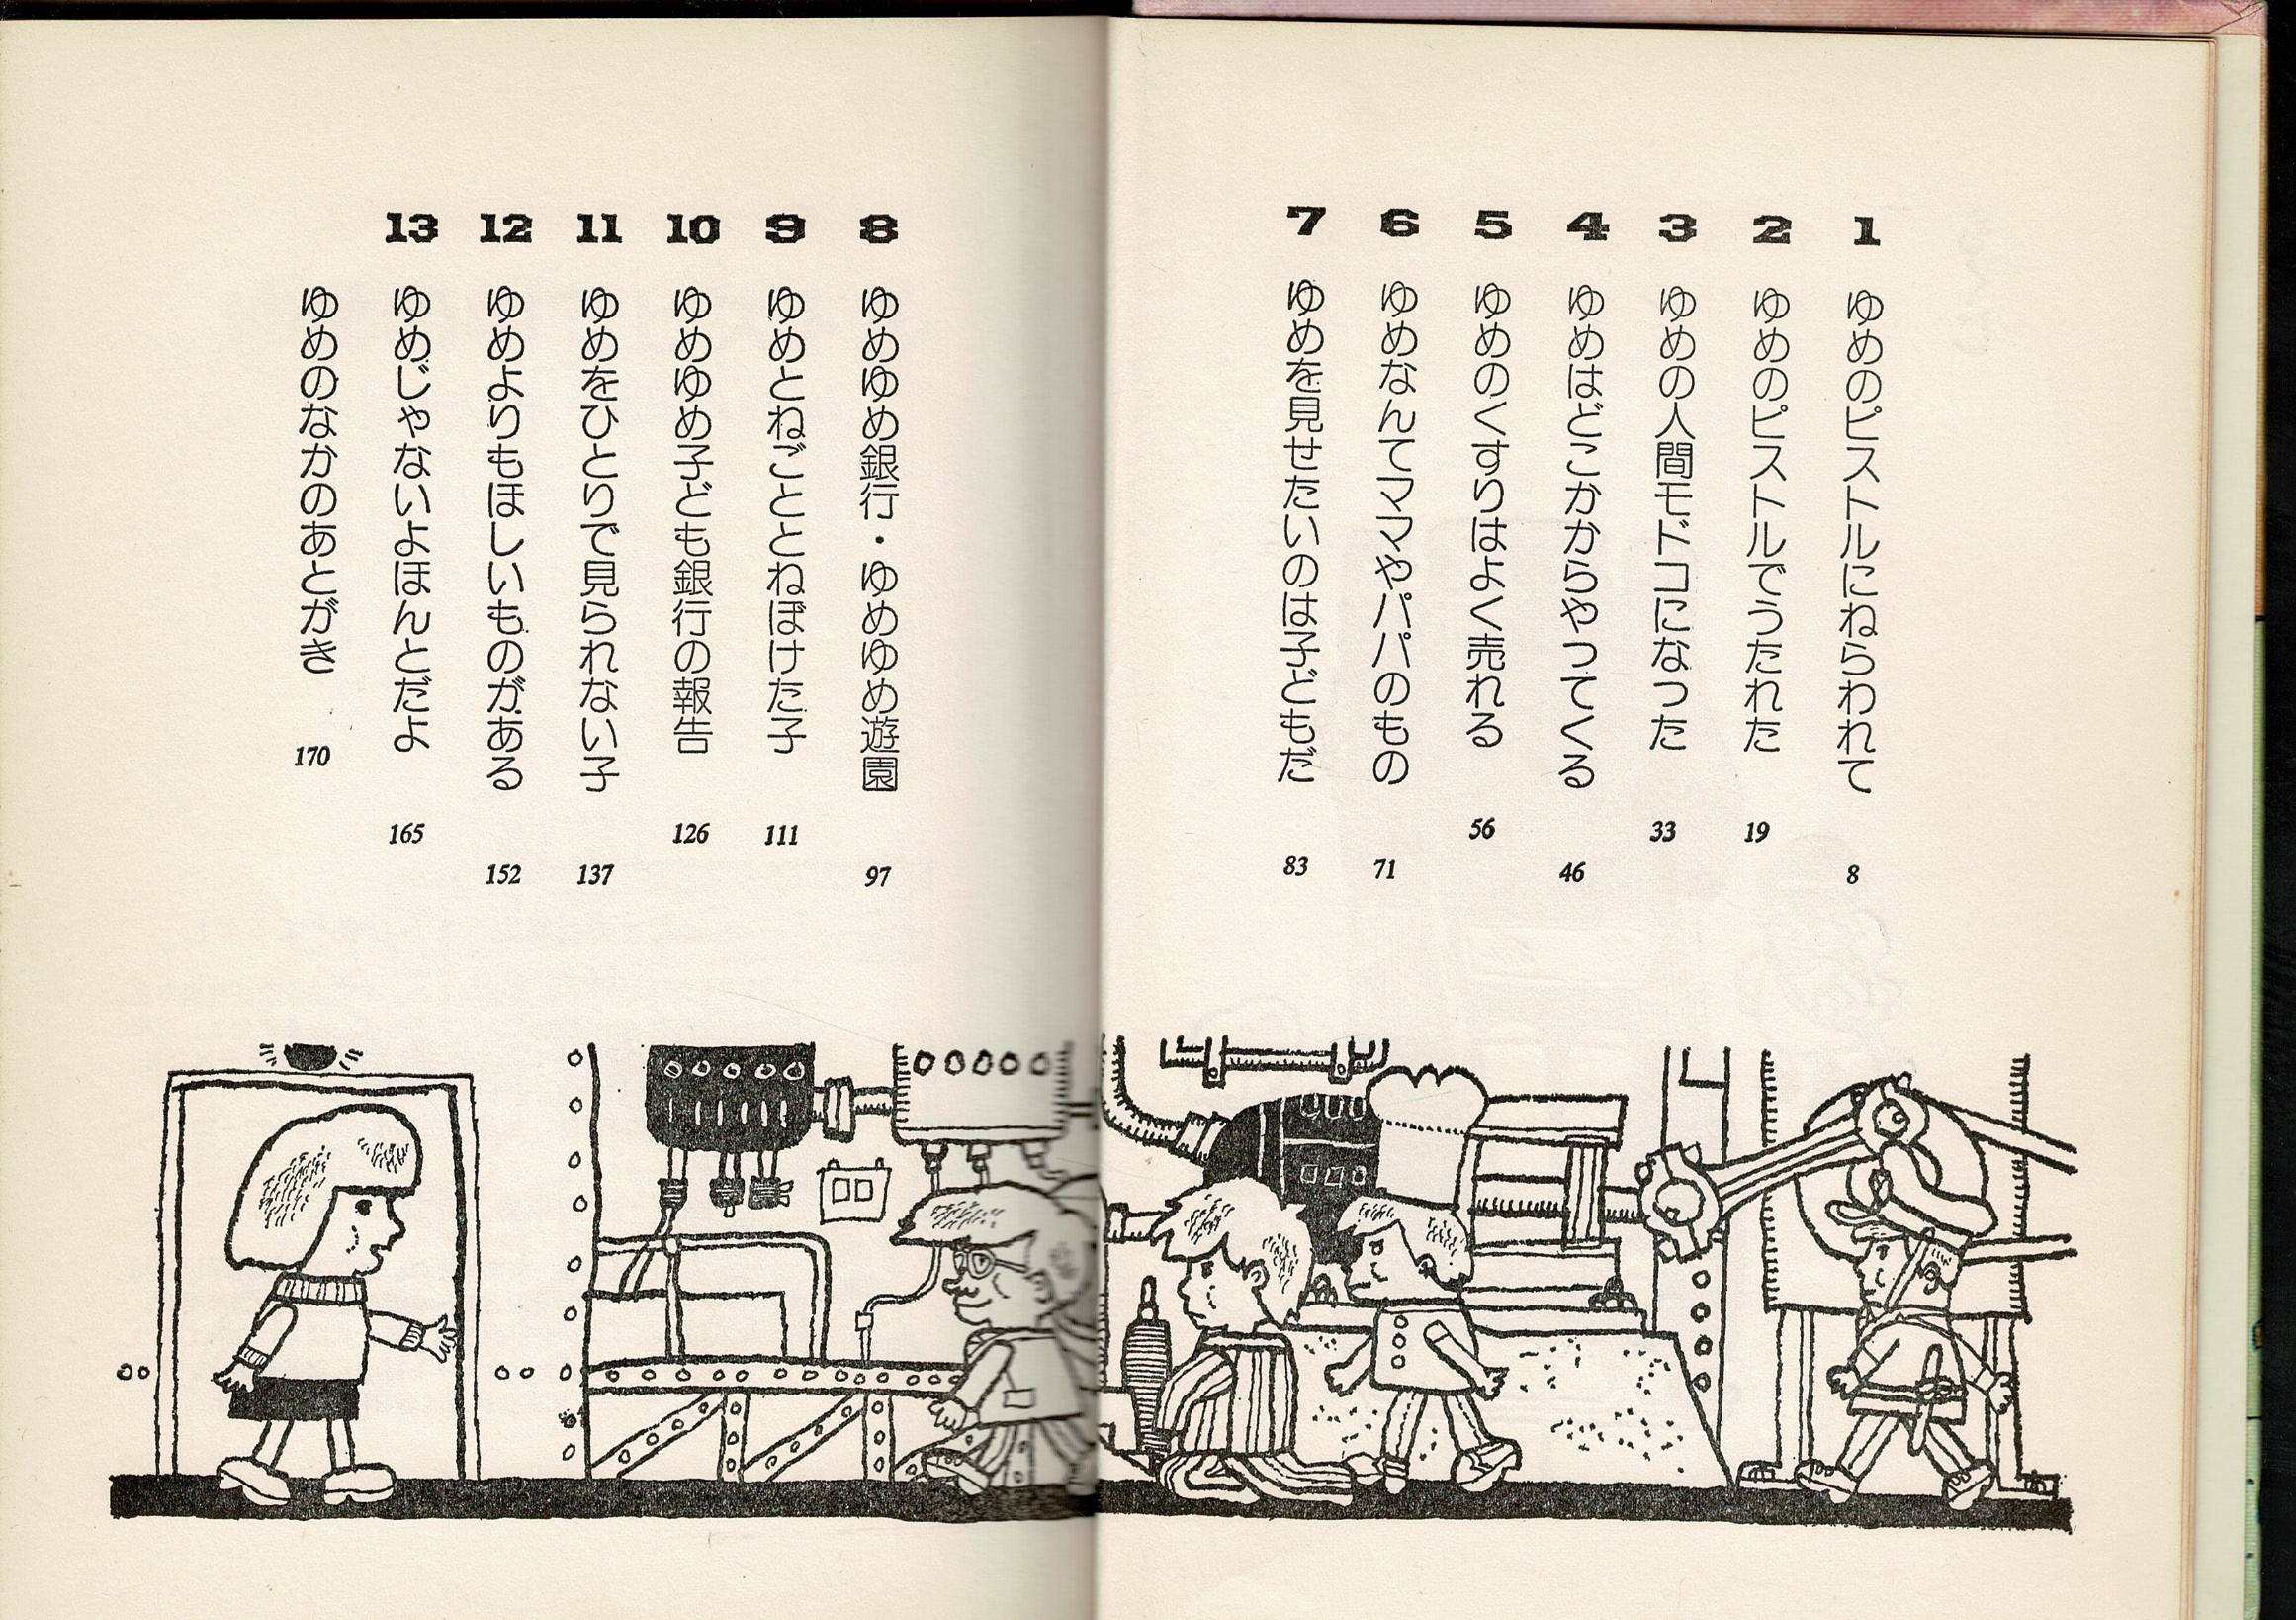 1 ゆめのピストルにねらわれて 8
2 ゆめのピストルでうたれた 19
3 ゆめの人間モドコになった 33
4 ゆめはどこかからやってくる 46
5 ゆめのくすりはよく売れる 56
6 ゆめなんてママやパパのもの 71
7 ゆめを見せたいのは子どもだ 83
8 ゆめゆめ銀行・ゆめゆめ遊園 97
9 ゆめとねごととねぼけた子 111
10 ゆめゆめ子ども銀行の報告 126
11 ゆめをひとりで見られない子 137
12 ゆめよりもほしいものがある 152
13 ゆめじゃないよほんとだよ 165
ゆめのなかのあとがき 170